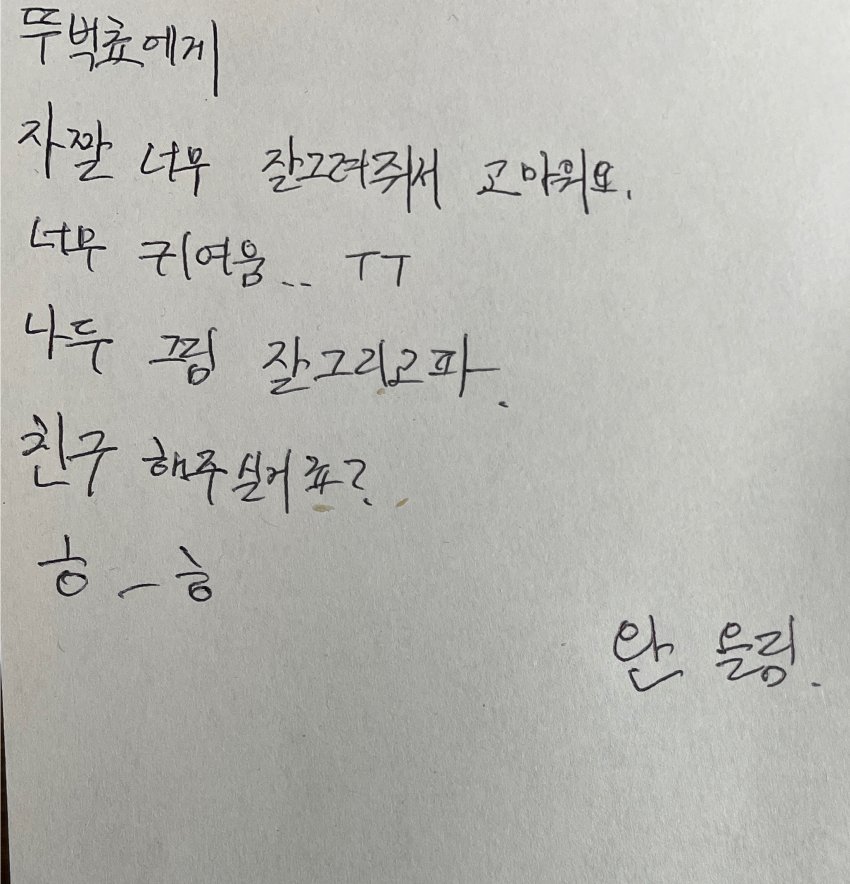 뚜벅쵸에게
자짤 너무 잘그려줘서 고마워요.
너무 귀여움.. ㅜㅜ
나두 끄림 잘그리고파.
친구 해주실어표?
흐_흐
안 올림.